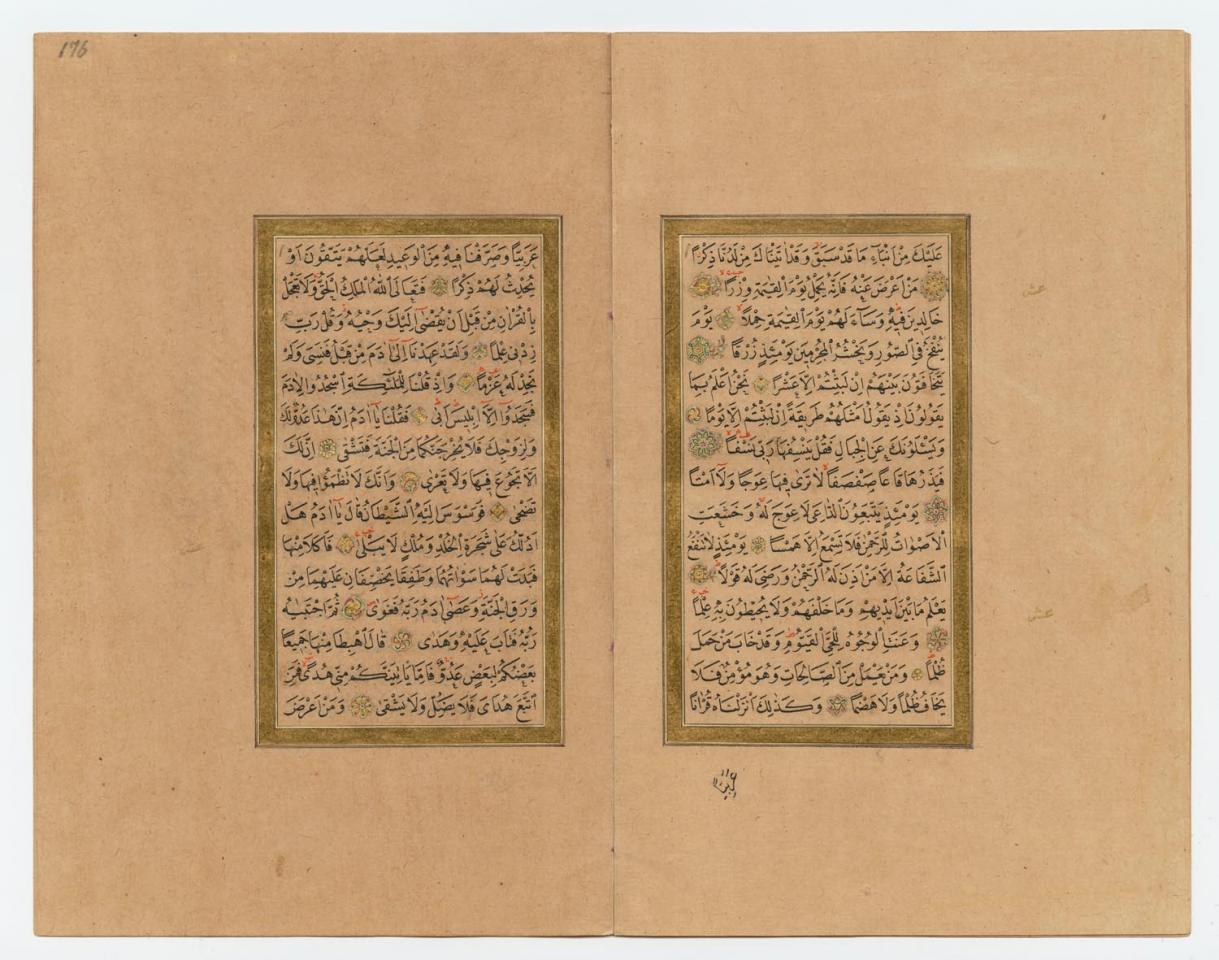 عَلَيْكَ مِنْ اَنْبَٓاءِ مَا قَدْ سَبَقَ وَقَدْ اٰتَيْنَاكَ مِنْ لَدُنَّا ذِكْرًا
مَنْ اَعْرَضَ عَنْهُ فَاِنَّهُ يَحْمِلُ يَوْمَ الْقِيٰمَةِ وِزْرًا
خَالِدِينَ فِيهِ وَسَٓاءَ لَهُمْ يَوْمَ الْقِيٰمَةِ حِمْلًا يَوْمَ
يُنْفَخُ فِي الصُّورِ وَنَحْشُرُ الْمُجْرِمِينَ يَوْمَئِذٍ زُرْقًا
يَتَخَافَتُونَ بَيْنَهُمْ اِنْ لَبِثْتُمْ اِلَّا عَشْرًا نَحْنُ اَعْلَمُ بِمَا
يَقُولُونَ اِذْ يَقُولُ اَمْثَلُهُمْ طَرِيقَةً اِنْ لَبِثْتُمْ اِلَّا يَوْمًا
وَيَسْـَٔلُونَكَ عَنِ الْجِبَالِ فَقُلْ يَنْسِفُهَا رَبِّي نَسْفًا
فَيَذَرُهَا قَاعًا صَفْصَفًا لَا تَرٰى فِيهَا عِوَجًا وَلَٓا اَمْتًا
يَوْمَئِذٍ يَتَّبِعُونَ الدَّاعِيَ لَا عِوَجَ لَهُ وَخَشَعَتِ
الْاَصْوَاتُ لِلرَّحْمٰنِ فَلَا تَسْمَعُ اِلَّا هَمْسًا يَوْمَئِذٍ لَا تَنْفَعُ
الشَّفَاعَةُ اِلَّا مَنْ اَذِنَ لَهُ الرَّحْمٰنُ وَرَضِيَ لَهُ قَوْلًا
يَعْلَمُ مَا بَيْنَ اَيْدِيهِمْ وَمَا خَلْفَهُمْ وَلَا يُحِيطُونَ بِهِ عِلْمًا
وَعَنَتِ الْوُجُوهُ لِلْحَيِّ الْقَيُّومِ وَقَدْ خَابَ مَنْ حَمَلَ
ظُلْمًا وَمَنْ يَعْمَلْ مِنَ الصَّالِحَاتِ وَهُوَ مُؤْمِنٌ فَلَا
يَخَافُ ظُلْمًا وَلَا هَضْمًا وَكَذٰلِكَ اَنْزَلْنَاهُ قُرْاٰنًا
١٧٦
عَرَبِيًّا وَصَرَّفْنَا فِيهِ مِنَ الْوَعِيدِ لَعَلَّهُمْ يَتَّقُونَ اَوْ
يُحْدِثُ لَهُمْ ذِكْرًا فَتَعَالَى اللّٰهُ الْمَلِكُ الْحَقُّ وَلَا تَعْجَلْ
بِالْقُرْاٰنِ مِنْ قَبْلِ اَنْ يُقْضٰى اِلَيْكَ وَحْيُهُ وَقُلْ رَبِّ
زِدْنِي عِلْمًا وَلَقَدْ عَهِدْنَا اِلٰى اٰدَمَ مِنْ قَبْلُ فَنَسِيَ وَلَمْ
نَجِدْ لَهُ عَزْمًا وَاِذْ قُلْنَا لِلْمَلٰٓئِكَةِ اسْجُدُوا لِاٰدَمَ
فَسَجَدُوا اِلَّا اِبْلِيسَ اَبٰى فَقُلْنَا يَا اٰدَمُ اِنَّ هٰذَا عَدُوٌّ لَكَ
وَلِزَوْجِكَ فَلَا يُخْرِجَنَّكُمَا مِنَ الْجَنَّةِ فَتَشْقٰى اِنَّ لَكَ
اَلَّا تَجُوعَ فِيهَا وَلَا تَعْرٰى وَاَنَّكَ لَا تَظْمَؤُا فِيهَا وَلَا
تَضْحٰى فَوَسْوَسَ اِلَيْهِ الشَّيْطَانُ قَالَ يَا اٰدَمُ هَلْ
اَدُلُّكَ عَلٰى شَجَرَةِ الْخُلْدِ وَمُلْكٍ لَا يَبْلٰى فَاَكَلَا مِنْهَا
فَبَدَتْ لَهُمَا سَوْاٰتُهُمَا وَطَفِقَا يَخْصِفَانِ عَلَيْهِمَا مِنْ
وَرَقِ الْجَنَّةِ وَعَصٰى اٰدَمُ رَبَّهُ فَغَوٰى ثُمَّ اجْتَبٰيهُ
رَبُّهُ فَتَابَ عَلَيْهِ وَهَدٰى قَالَ اهْبِطَا مِنْهَا جَمِيعًا
بَعْضُكُمْ لِبَعْضٍ عَدُوٌّ فَاِمَّا يَأْتِيَنَّكُمْ مِنِّي هُدًى فَمَنِ
اتَّبَعَ هُدَايَ فَلَا يَضِلُّ وَلَا يَشْقٰى وَمَنْ اَعْرَضَ